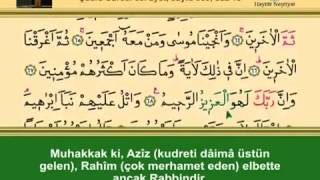 Hayrat Neşriyat
ثَمَّ الْاٰخَر۪ينَۚ ﴿٦٤﴾ وَاَنْجَيْنَا مُوسٰى وَمَنْ مَعَهُٓ اَجْمَع۪ينَۚ ﴿٦٥﴾ ثُمَّ اَغْرَقْنَا
الْاٰخَر۪ينَۜ ﴿٦٦﴾ اِنَّ ف۪ي ذٰلِكَ لَاٰيَةًۜ وَمَا كَانَ اَكْثَرُهُمْ مُؤْمِن۪ينَ ﴿٦٧﴾
وَاِنَّ رَبَّكَ لَهُوَ الْعَز۪يزُ الرَّح۪يمُ۟ ﴿٦٨﴾ وَاتْلُ عَلَيْهِمْ نَبَاَ اِبْرٰه۪يمَۢ
Muhakkak ki, Azîz (kudreti dâimâ üstün
gelen), Rahîm (çok merhamet eden) elbette
ancak Rabbindir